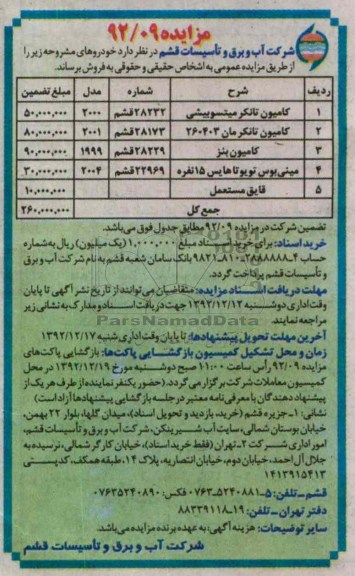 مزایده ۹۲/۰۹
شرکت آب و برق و تأسیسات قشم در نظر دارد خودروهای مشروحه زیر را
از طریق مزایده عمومی به اشخاص حقیقی و حقوقی به فروش برساند.
ردیف شرح شماره مدل مبلغ تضمین
۱ کامیون تانکر میتسوبیشی ۲۸۲۳۲قشم ۲۰۰۰ ۵۰,۰۰۰,۰۰۰
۲ کامیون تانکر مان ۲۶۰۴۰۳ ۲۸۱۷۳قشم ۲۰۰۱ ۸۰,۰۰۰,۰۰۰
۳ کامیون بنز ۲۸۲۲۹قشم ۱۹۹۹ ۹۰,۰۰۰,۰۰۰
۴ مینی‌بوس تویوتا هایس ۱۵نفره ۲۲۹۶۹قشم ۲۰۰۴ ۳۰,۰۰۰,۰۰۰
۵ قایق مستعمل ۱۰,۰۰۰,۰۰۰
جمع کل ۲۶۰,۰۰۰,۰۰۰
تضمین شرکت در مزایده ۹۲/۰۹ مطابق جدول فوق می‌باشد.
خرید اسناد: برای خرید اسناد مبلغ ۱,۰۰۰,۰۰۰ (یک میلیون) ریال به شماره
بانک سامان شعبه قشم به نام شرکت آب و برق
و تأسیسات قشم پرداخت گردد.
مهلت دریافت اسناد مزایده: متقاضیان می‌توانند از تاریخ نشر آگهی تا پایان
وقت اداری دوشنبه ۱۳۹۲/۱۲/۱۲ جهت دریافت اسناد و مدارک به نشانی زیر
مراجعه نمایند.
ParsNamadData
آخرین مهلت تحویل پیشنهادها: تا پایان وقت اداری شنبه ۱۳۹۲/۱۲/۱۷
زمان و محل تشکیل کمیسیون بازگشایی پاکت‌ها: بازگشایی پاکت‌های
مزایده ۹۲/۰۹ رأس ساعت ۱۱:۰۰ صبح دوشنبه مورخ ۱۳۹۲/۱۲/۱۹ در محل
کمیسیون معاملات شرکت برگزار می‌گردد. (حضور یک نفر نماینده از طرف هر یک از
پیشنهاد دهندگان با معرفی‌نامه معتبر در جلسه بازگشایی پیشنهادها آزاد است)
نشانی: ۱ـ جزیره قشم (خرید، بازدید و تحویل اسناد)، میدان گلها، بلوار ۲۲ بهمن،
خیابان بوستان شمالی، سایت آب شیرین‌کن، شرکت آب و برق و تأسیسات قشم،
امور اداری شرکت ۲ـ تهران (فقط خرید اسناد)، خیابان کارگر شمالی، نرسیده به
جلال آل احمد، خیابان دوم، خیابان انتصاریه، پلاک ۱۴، طبقه همکف، کد پستی
۱۴۱۳۹۱۵۴۱۳
قشم ـ تلفن: ۵ـ۵۲۴۰۸۸۱ـ۰۷۶۳ فکس: ۰۷۶۳۵۲۴۰۸۹۰
دفتر تهران ـ تلفن: ۱۹ـ۸۸۳۳۹۱۱۸
سایر توضیحات: هزینه آگهی به عهده برنده مزایده می‌باشد.
شرکت آب و برق و تأسیسات قشم